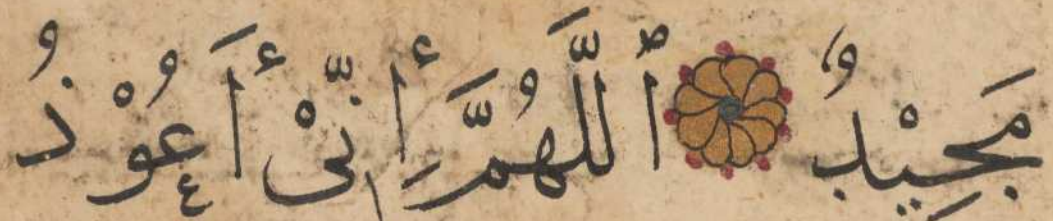 مَجِيْدٌ ۞ ٱللَّهُمَّ إِنِّىْ أَعُوْذُ